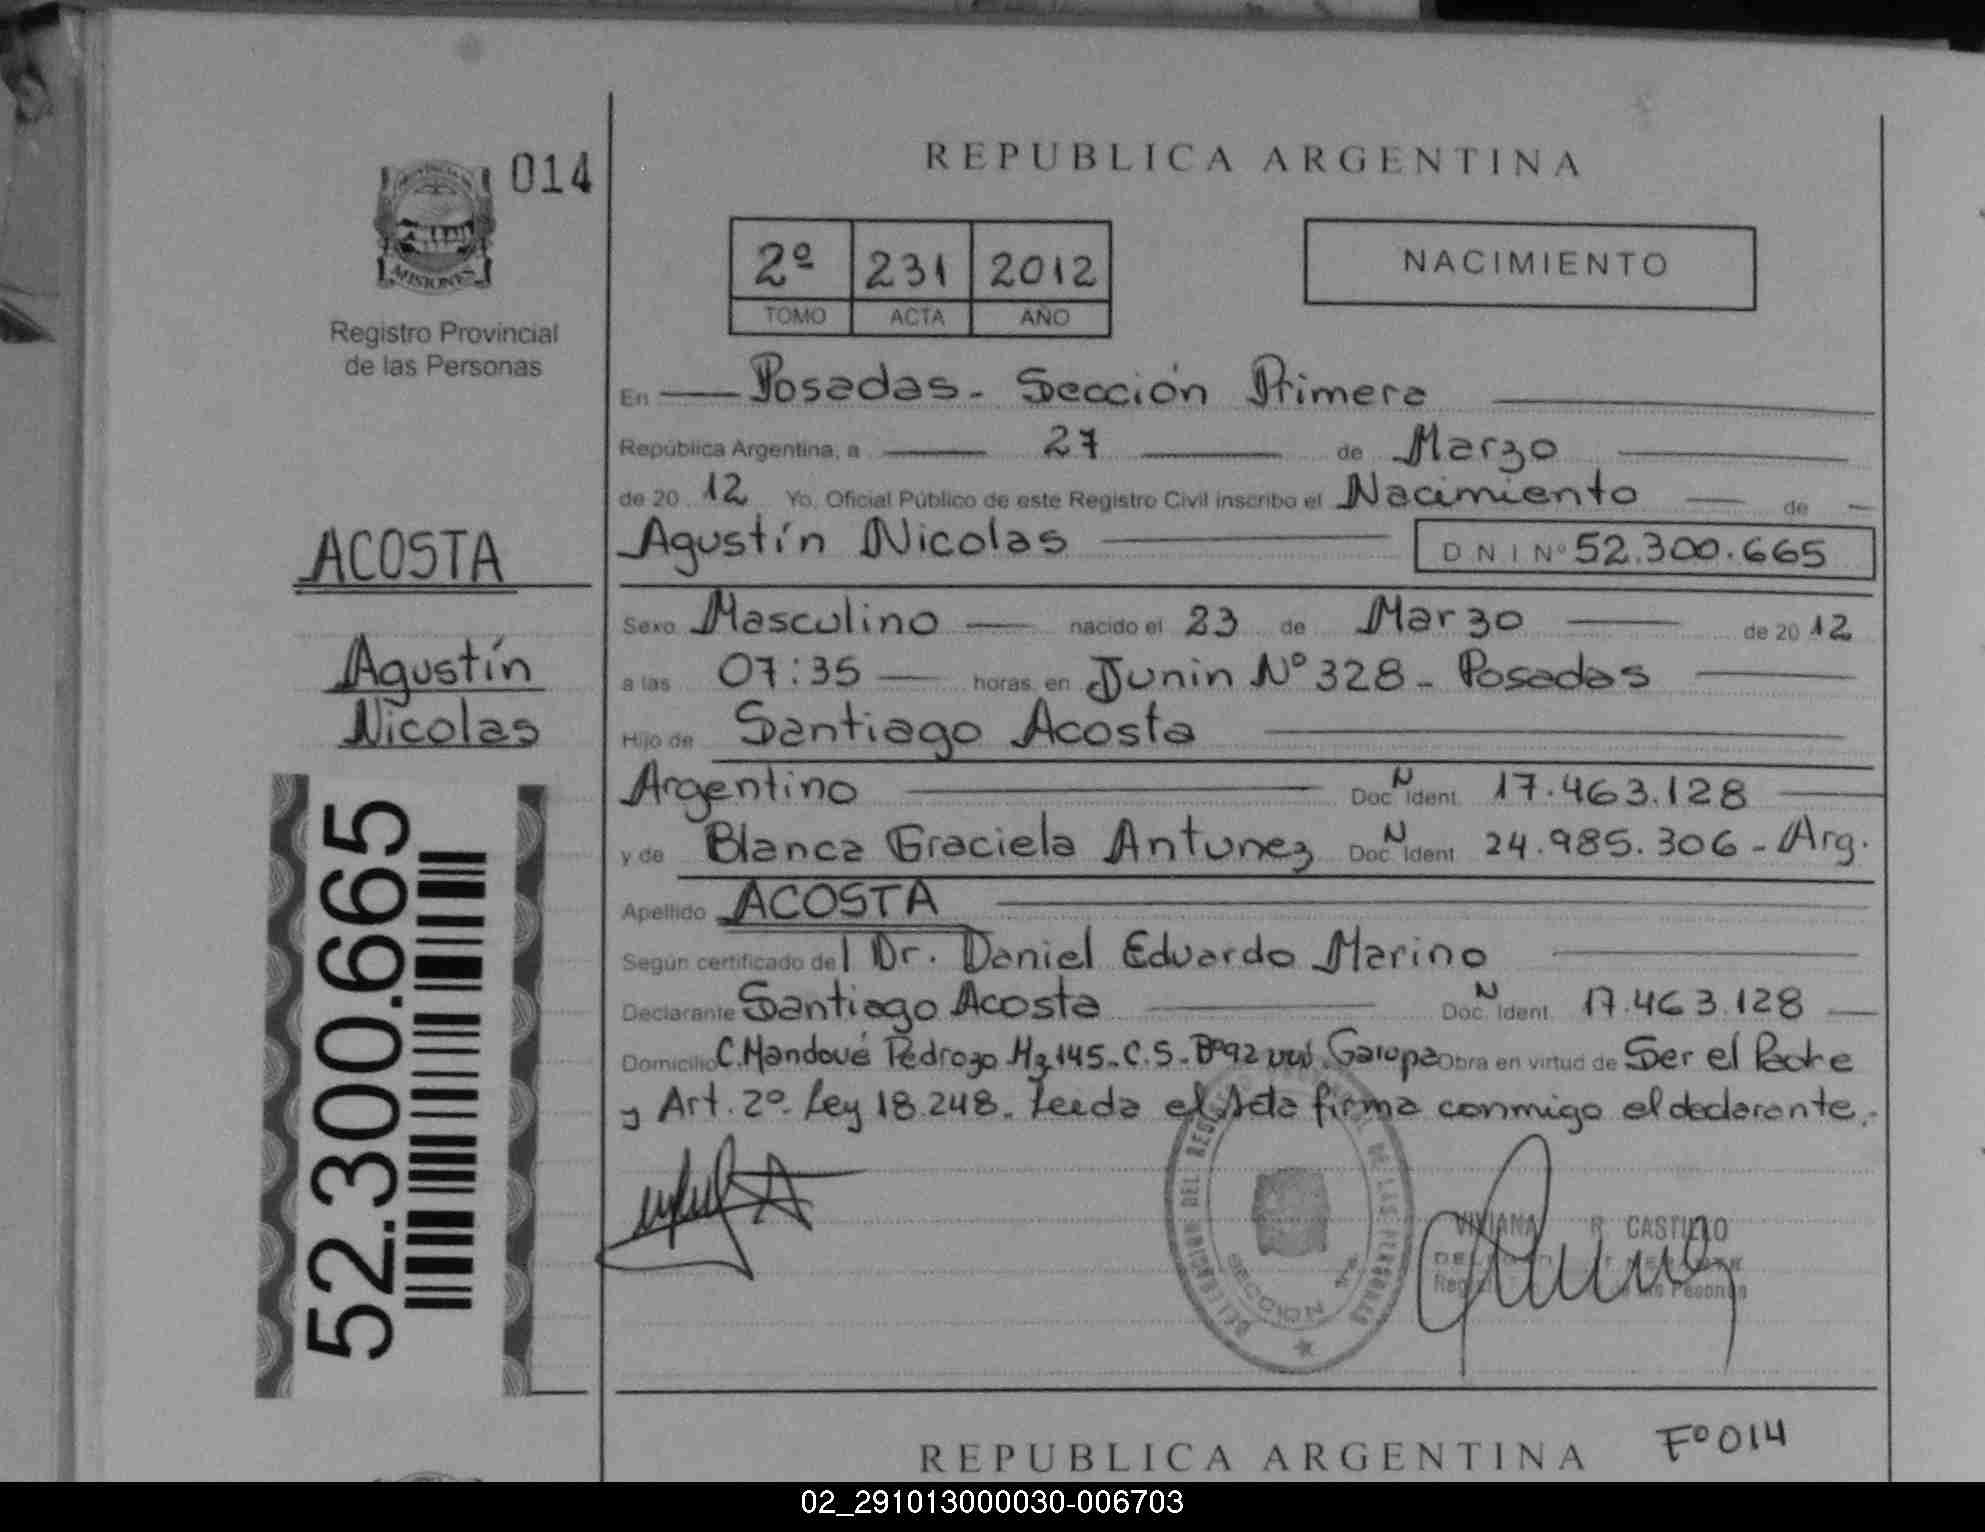 014
MISIONES
Registro Provincial
de las Personas
REPUBLICA ARGENTINA
2º 231 2012
TOMO ACTA AÑO
NACIMIENTO
En Posadas - Sección Primera
República Argentina, a 27 de Marzo
de 20 12 Yo, Oficial Público de este Registro Civil inscribo el Nacimiento de
Agustín Nicolas D N I Nº 52.300.665
ACOSTA
Agustín
Nicolas
52.300.665
Sexo Masculino nacido el 23 de Marzo de 20 12
a las 07:35 horas, en Junin Nº 328 - Posadas
Hijo de Santiago Acosta
Argentino Doc. N Ident. 17.463.128
y de Blanca Graciela Antunez Doc. N Ident. 24.985.306 - Arg.
Apellido ACOSTA
Según certificado del Dr. Daniel Eduardo Marino
Declarante Santiago Acosta Doc. N Ident. 17.463.128
Domicilio C. Mandové Pedrozo Mz 145 - C.5 - Bº 92 Garupa Obra en virtud de Ser el Padre
y Art. 2º - Ley 18.248 - Leida el Acta firma conmigo el declarante.
DELEGACION DEL DE LAS PERSONAS
SECCION 1ra.
VIVIANA R. CASTILLO
REPUBLICA ARGENTINA
Fº 014
02_291013000030-006703